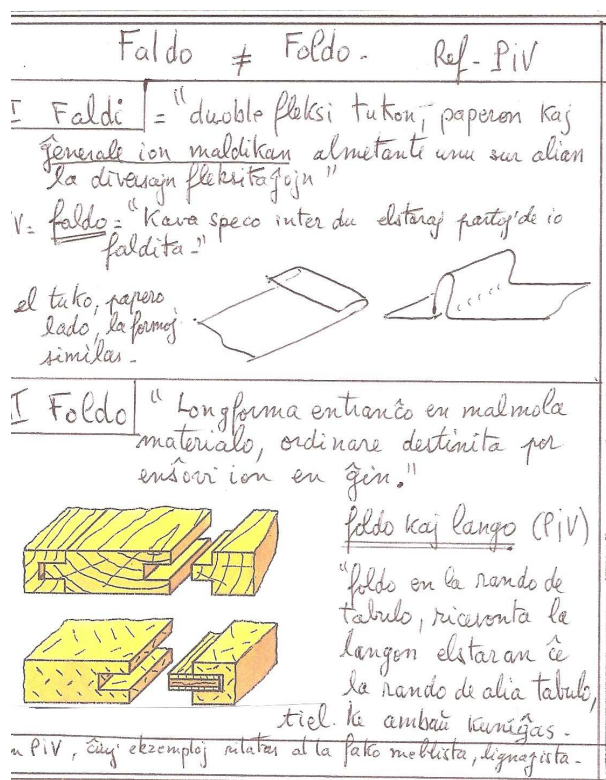 Faldo ≠ Foldo - Ref- PiV
I Faldi = "duoble fleksi tukon, paperon kaj
ĝenerale ion maldikan almetante unu sur alian
la diversajn fleksitaĵojn"
V= faldo = "Kava speco inter du elstaraj partoj de io
faldita-"
el tuko, papero
lado, la formoj
similas -
I Foldo "Longforma entranĉo en malmola
materialo, ordinare destinita por
enŝovi ion en ĝin."
foldo kaj lango (PiV)
"foldo en la rando de
tabulo, ricevonta la
langon elstaran ĉe
la rando de alia tabulo,
tiel ke ambaŭ kuniĝas -
n PiV, ĉiuj ekzemploj rilatas al la fako meblista, lignaĵista -